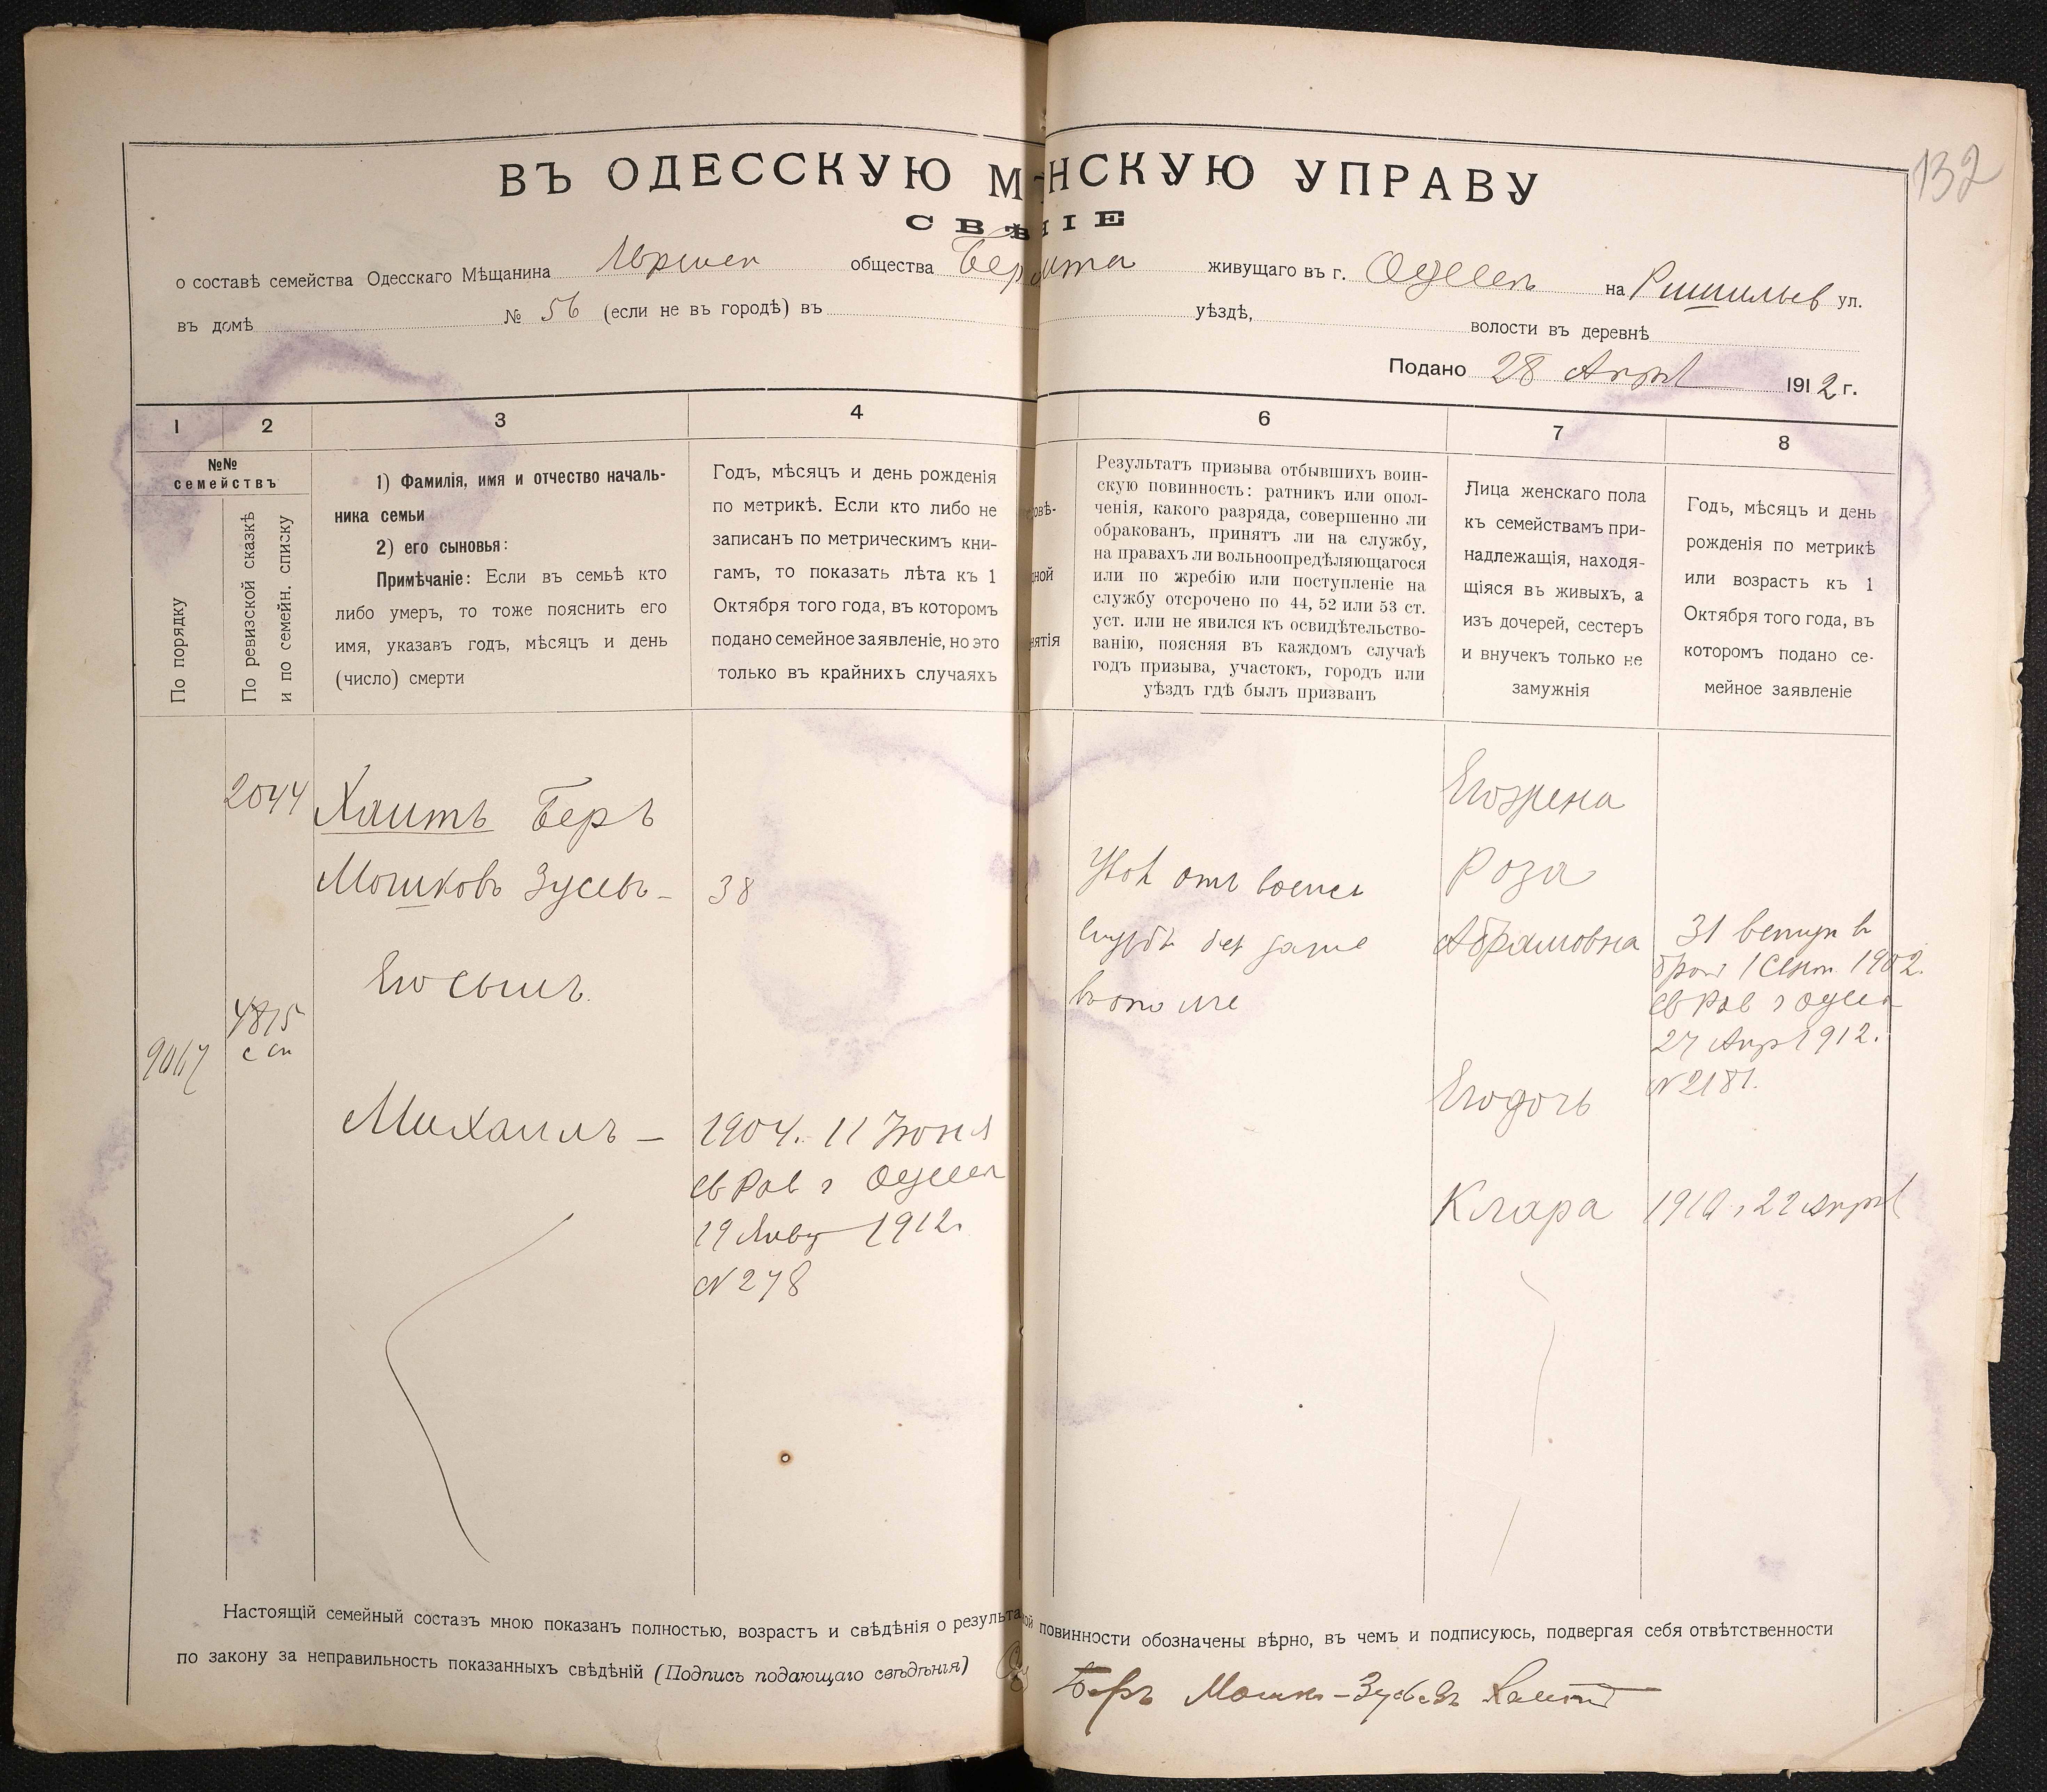 132
ВЪ ОДЕССКУЮ М НСКУЮ УПРАВУ
СВѢ НІЕ
о составѣ семейства Одесскаго Мѣщанина общества живущаго въ г. Одессѣ на Ришильев ул.
въ домѣ № 56 (если не въ городѣ) въ уѣздѣ, волости въ деревнѣ
Подано 28 Апрл 1912 г.
1 2 3 4 6 7 8
№№ семействъ
По порядку
По ревизской сказкѣ
и по семейн. списку
1) Фамилія, имя и отчество началь-
ника семьи
2) его сыновья:
Примѣчаніе: Если въ семьѣ кто
либо умеръ, то тоже пояснить его
имя, указавъ годъ, мѣсяцъ и день
(число) смерти
Годъ, мѣсяцъ и день рожденія
по метрикѣ. Если кто либо не
записанъ по метрическимъ кни-
гамъ, то показать лѣта къ 1
Октября того года, въ которомъ
подано семейное заявленіе, но это
только въ крайнихъ случаяхъ
Результатъ призыва отбывшихъ воин-
скую повинность: ратникъ или опол-
ченія, какого разряда, совершенно ли
обракованъ, принятъ ли на службу,
на правахъ ли вольноопредѣляющагося
или по жребію или поступленіе на
службу отсрочено по 44, 52 или 53 ст.
уст. или не явился къ освидѣтельство-
ванію, поясняя въ каждомъ случаѣ
годъ призыва, участокъ, городъ или
уѣздъ гдѣ былъ призванъ
Лица женскаго пола
къ семействамъ при-
надлежащія, находя-
щіяся въ живыхъ, а
изъ дочерей, сестеръ
и внучекъ только не
замужнія
Годъ, мѣсяцъ и день
рожденія по метрикѣ
или возрастъ къ 1
Октября того года, въ
которомъ подано се-
мейное заявленіе
2044
Хаитъ Беръ
Мошковъ Зусевъ — 38
Его сынъ
4815
с сп
9067
Михаилъ — 1904. 11 Іюня
св Рав г Одессы
19 Янвр 1912.
N 278
Его жена
Роза
Абрамовна
31 вступ в
брак 1 Сент. 1902.
св Рав г Одессы
27 Апр 1912.
N 2181.
Его дочь
Клара 1910 г 22 Апрл
Настоящій семейный составъ мною показанъ полностью, возрастъ и свѣдѣнія о результа ой повинности обозначены вѣрно, въ чемъ и подписуюсь, подвергая себя отвѣтственности
по закону за неправильность показанныхъ свѣдѣній (Подпись подающаго свѣдѣнія)
Беръ Мошко-Зусевъ Хаитъ